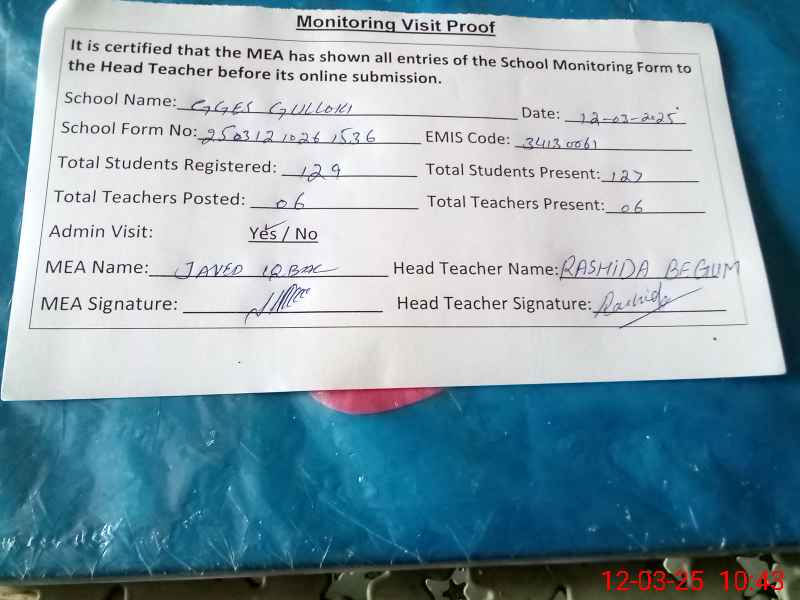 Monitoring Visit Proof
It is certified that the MEA has shown all entries of the School Monitoring Form to
the Head Teacher before its online submission.
School Name: GGES GULLOKI Date: 12-03-2025
School Form No: 25031210261536 EMIS Code: 34130061
Total Students Registered: 129 Total Students Present: 127
Total Teachers Posted: 06 Total Teachers Present: 06
Admin Visit: Yes / No
MEA Name: JAVED IQBAL Head Teacher Name: RASHIDA BEGUM
MEA Signature: Head Teacher Signature: Rashida
12-03-25 10:43